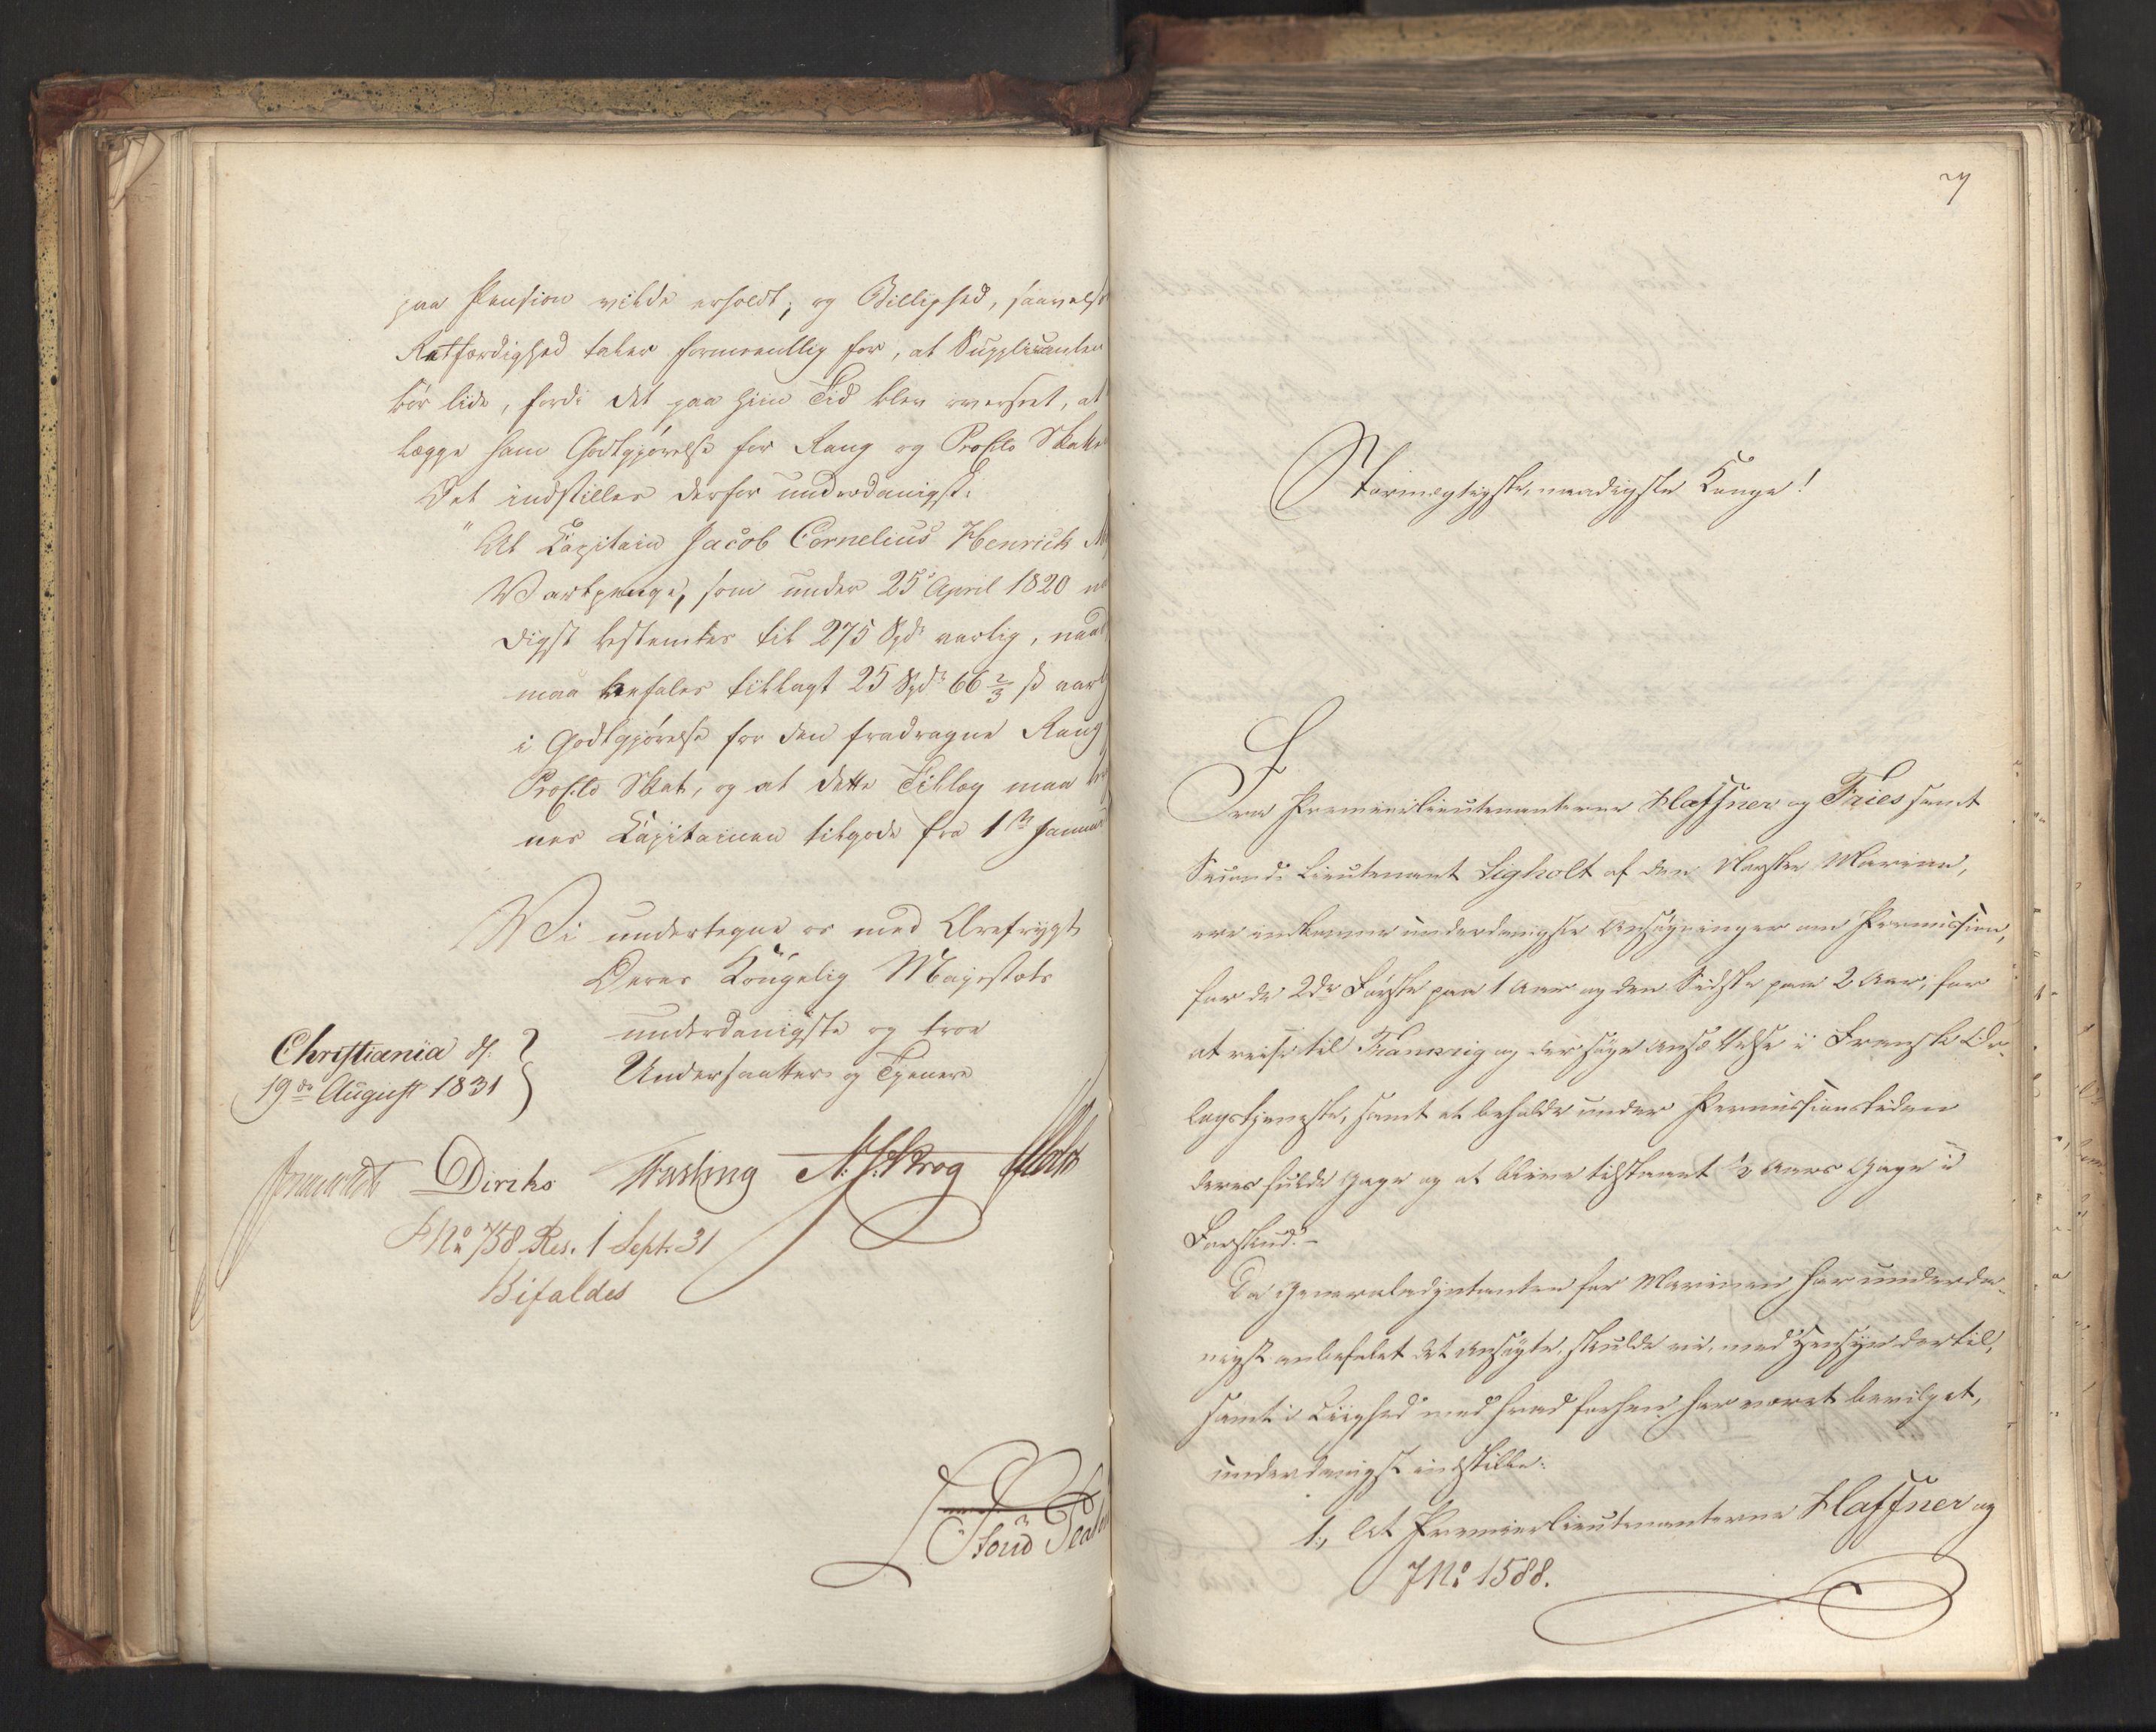 paa Pension vilde erholdt; og Billighed, saavelsom
Retfærdighed taler formeentlig for, at Supplicanten
bør lide, fordi det paa hiin Tid blev overseet, at
lægge ham Godtgjørelse for Rang og Procento Skatten
Det indstilles derfor underdanigst:
"At Capitain Jacob Cornelius Henrick
Vartpenge, som under 25de April 1820 naa
digst bestemtes til 275 Spd. aarlig, naad
maa befales tillagt 25 Spdr 66 2/3 ß aarl
i Godtgjørelse for den fradragne Rang
Procento Skat, og at dette Tillæg maa
nes Capitainen tilgode fra 1ste Januar
Vi undertegne os med Ærefrygt
Deres Kongelig Majestæts
underdanigste og troe
Undersaatter og Tjenere
Christiania d.
19de August 1831
Diriks Fasting N. J. Krog Holst
No 758 Res. 1 Sept. 31
Bifaldes
27
Stormægtigste, naadigste Konge!
Fra Premierlieutenanterne Haffner og Fries samt
Secondlieutenant Sigholt af den Norske Marine,
ere indkomne underdanigste Ansøgninger om Permission,
for de 2de Første paa 1 Aar og den Sidste paa 2 Aar, for
at reise til Frankrig og der søge Ansættelse i Fransk Or-
logstjeneste, samt at beholde under Permissionstiden
deres fulde Gage og at blive tilstaaet 1/2 Aars Gage i
Forskud.-
Da Generaladjutanten for Marinen har underda-
nigst anbefalet det Ansøgte, skulde vi, med Hensyn dertil,
samt i Liighed med hvad forhen har været bevilget,
underdanigst indstille:
1., At Premierlieutenanterne Haffner og
JNo 1588.